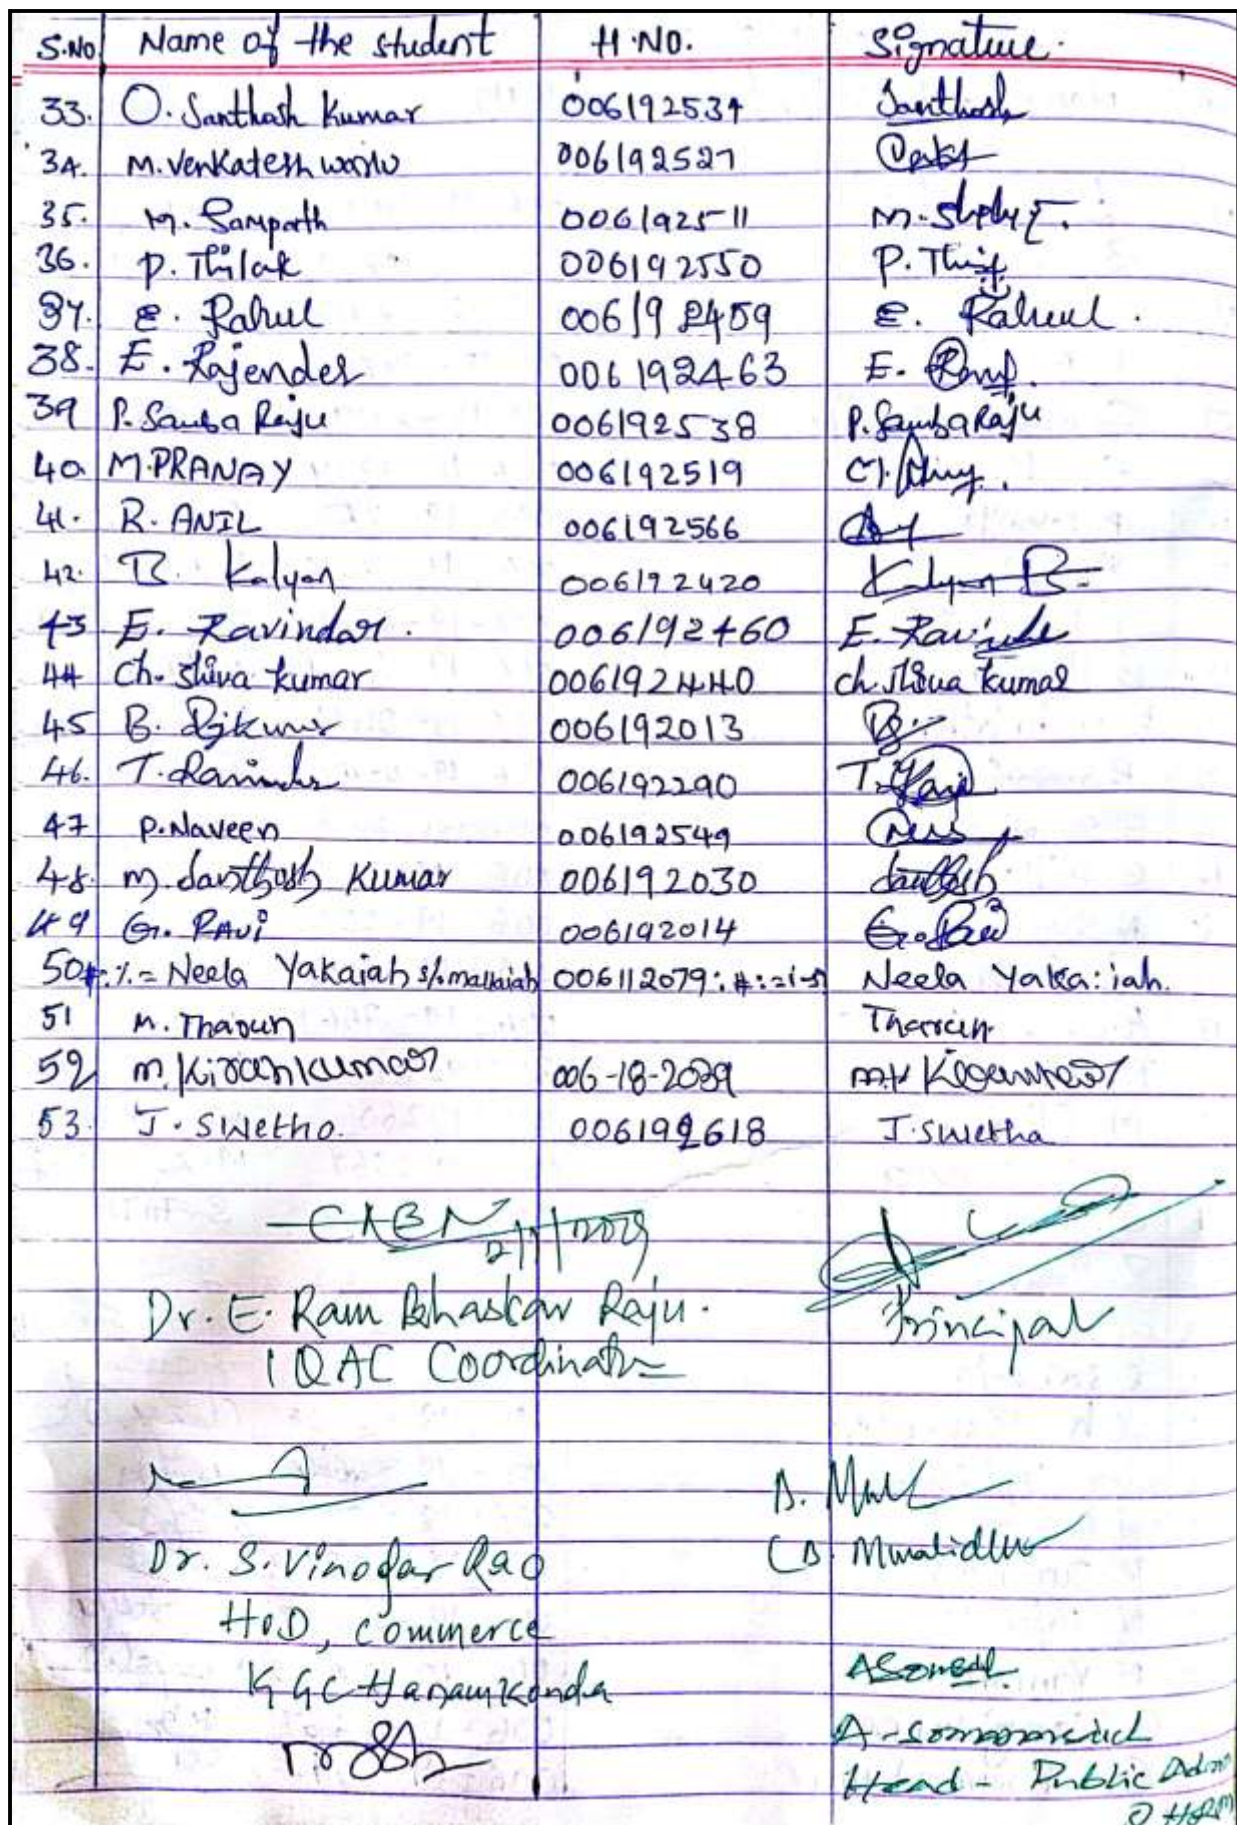 S.No Name of the student H.NO. Signature.
33. O. Santhosh Kumar 006192534 Santhosh
34. M. Venkatesh warlu 006192527
35. M. Sampath 006192511 M.
36. P. Thilak 006192550 P.
37. E. Rahul 006192459 E. Rahul.
38. E. Rajender 006192463 E.
39 P. Samba Raju 006192538 P. Samba Raju
40 M.PRANAY 006192519
41. R. ANIL 006192566
42. B. Kalyan 006192420 Kalyan B.
43 E. Ravindar. 006192460 E.
44 Ch. Shiva kumar 006192440 ch. Shiva kumar
45 B. 006192013
46. T. Ravinder 006192290 T.
47 P. Naveen 006192549
48. M. Santhosh Kumar 006192030 Santhosh
49 G. RAVi 006192014 G.
50 Neela Yakaiah s/o mallaiah 006112079 Neela Yaka:iah.
51 M. Tharun Tharun
52 M. Kirankumar 006-18-2039
53. J. Swetha. 006192618 J. Swetha
2/1/2019
Dr. E. Ram Bhaskar Raju. Principal
IQAC Coordinator
B.
Dr. S. Vinodar Rao (B. Muralidhar
HOD, Commerce
KGC Hanamkonda
A.
Head - Public Admn
& HRM